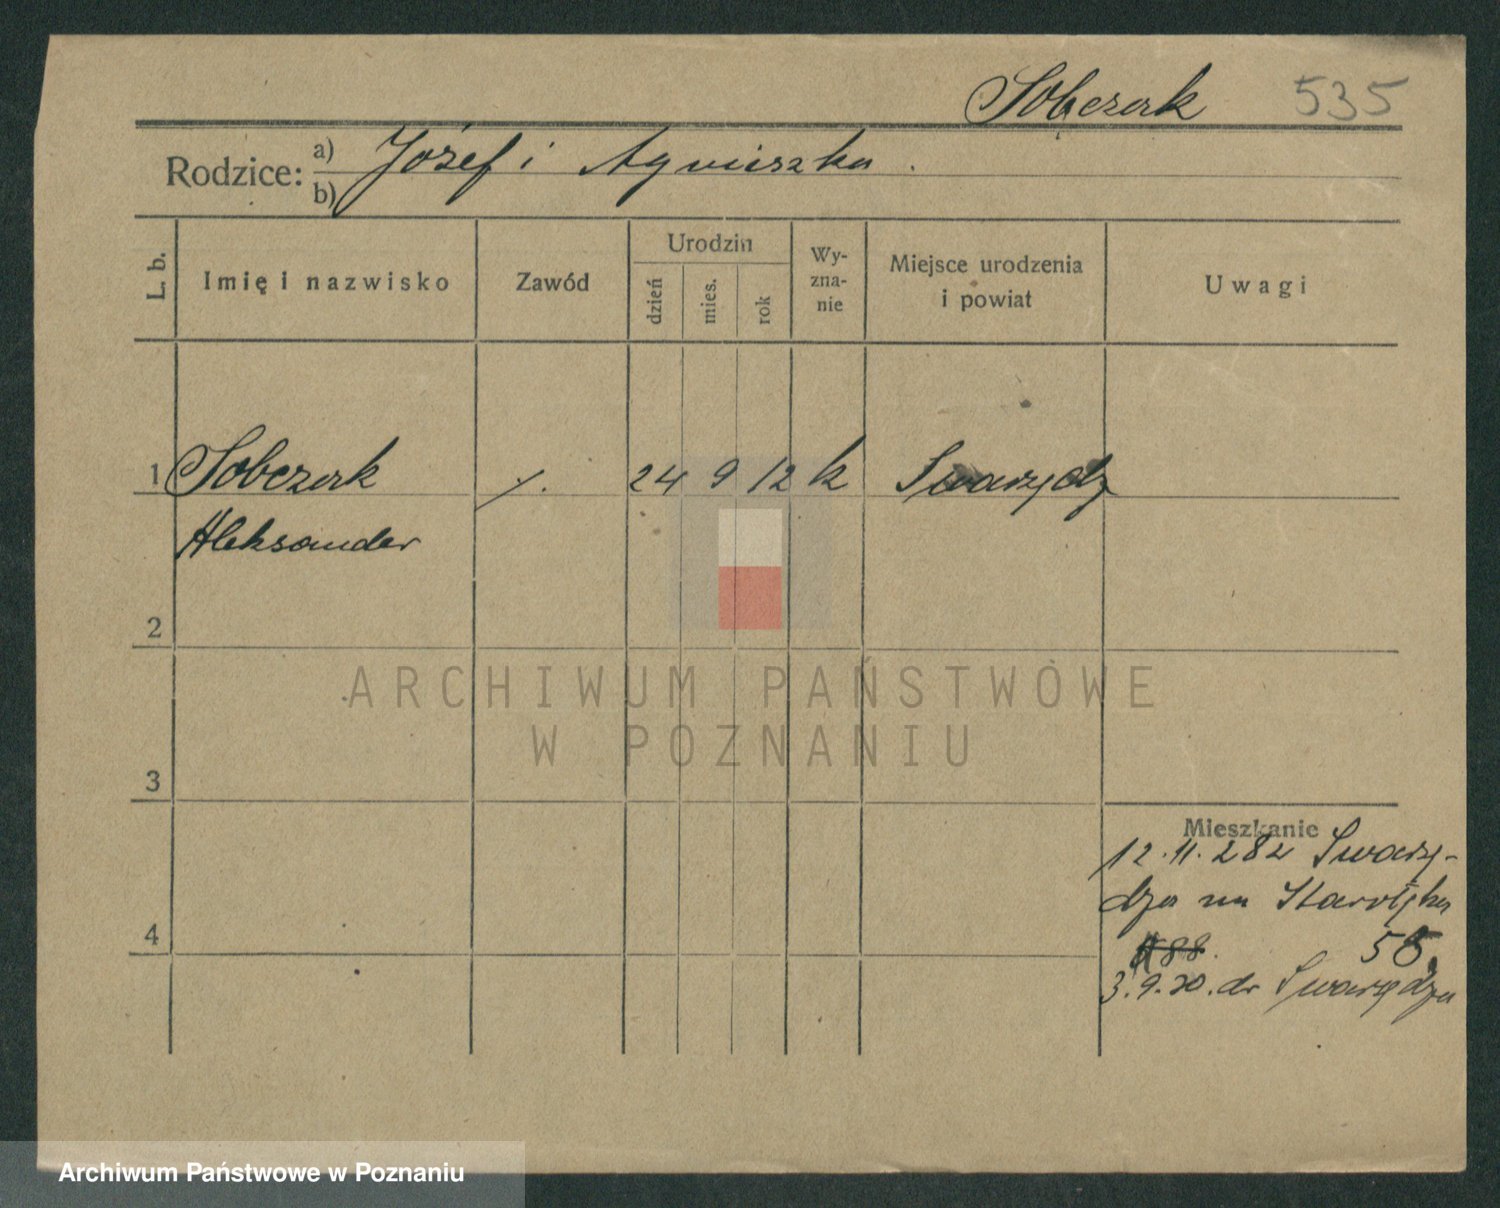 Sobczak 535
Rodzice: a) Józef i Agnieszka.
b)
L. b. Imię i nazwisko Zawód Urodzin dzień mies. rok Wy-zna-nie Miejsce urodzenia i powiat Uwagi
1 Sobczak /. 24 9 12 k Swarzędz
Aleksander
2
ARCHIWUM PAŃSTWOWE
W POZNANIU
3
Mieszkanie
12.11.28 z Swarzę-
dza na Starołęka
4 58.
3.9.30. do Swarzędza
Archiwum Państwowe w Poznaniu